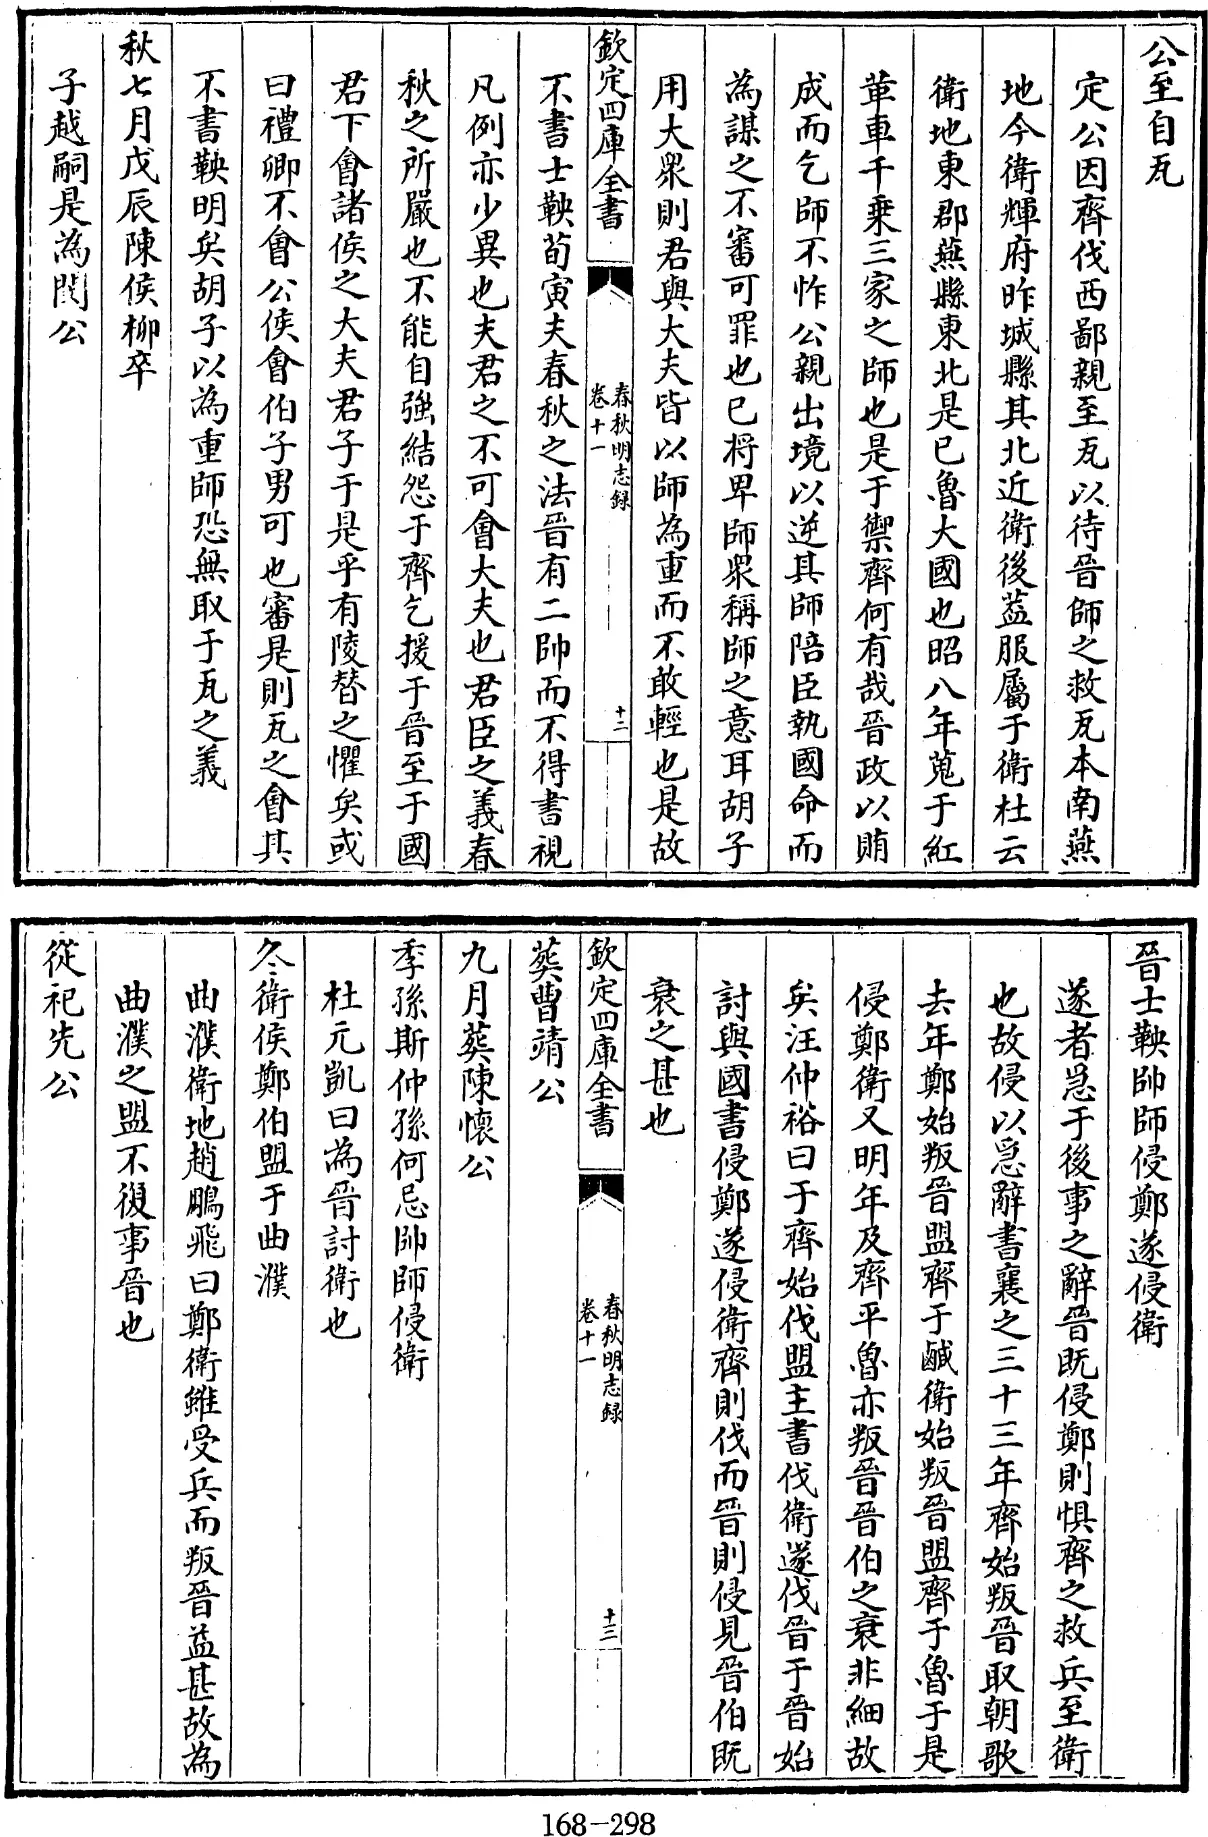 公至自瓦
定公因齊伐西鄙親至瓦以待晉師之救瓦本南燕
地今衛輝府昨城縣其北近衛後葢服屬于衛杜云
衛地東郡燕縣東北是已魯大國也昭八年蒐于紅
革車千乗三家之師也是于禦齊何有哉晉政以賄
成而乞師不怍公親出境以逆其師陪臣執國命而
為謀之不審可罪也已将卑師衆稱師之意耳胡子
用大衆則君與大夫皆以師為重而不敢輕也是故
欽定四庫全書
春秋明志録
卷十一
十二
不書士鞅荀寅夫春秋之法晉有二帥而不得書視
凡例亦少異也夫君之不可會大夫也君臣之義春
秋之所嚴也不能自強結怨于齊乞援于晉至于國
君下會諸侯之大夫君子于是乎有陵替之懼矣或
曰禮卿不會公侯會伯子男可也審是則瓦之會其
不書鞅明矣胡子以為重師恐無取于瓦之義
秋七月戊辰陳侯柳卒
子越嗣是為閔公
晉士鞅帥師侵鄭遂侵衛
遂者急于後事之辭晉既侵鄭則惧齊之救兵至衛
也故侵以急辭書襄之三十三年齊始叛晉取朝歌
去年鄭始叛晉盟齊于鹹衛始叛晉盟齊于魯于是
侵鄭衛又明年及齊平魯亦叛晉晉伯之衰非細故
矣汪仲裕曰于齊始伐盟主書伐衛遂伐晉于晉始
討與國書侵鄭遂侵衛齊則伐而晉則侵見晉伯既
衰之甚也
欽定四庫全書
春秋明志録
卷十一
十三
葬曹靖公
九月葬陳懷公
季孫斯仲孫何忌帥師侵衛
杜元凱曰為晉討衛也
冬衛侯鄭伯盟于曲濮
曲濮衛地趙鵬飛曰鄭衛雖受兵而叛晉益甚故為
曲濮之盟不復事晉也
從祀先公
168-298